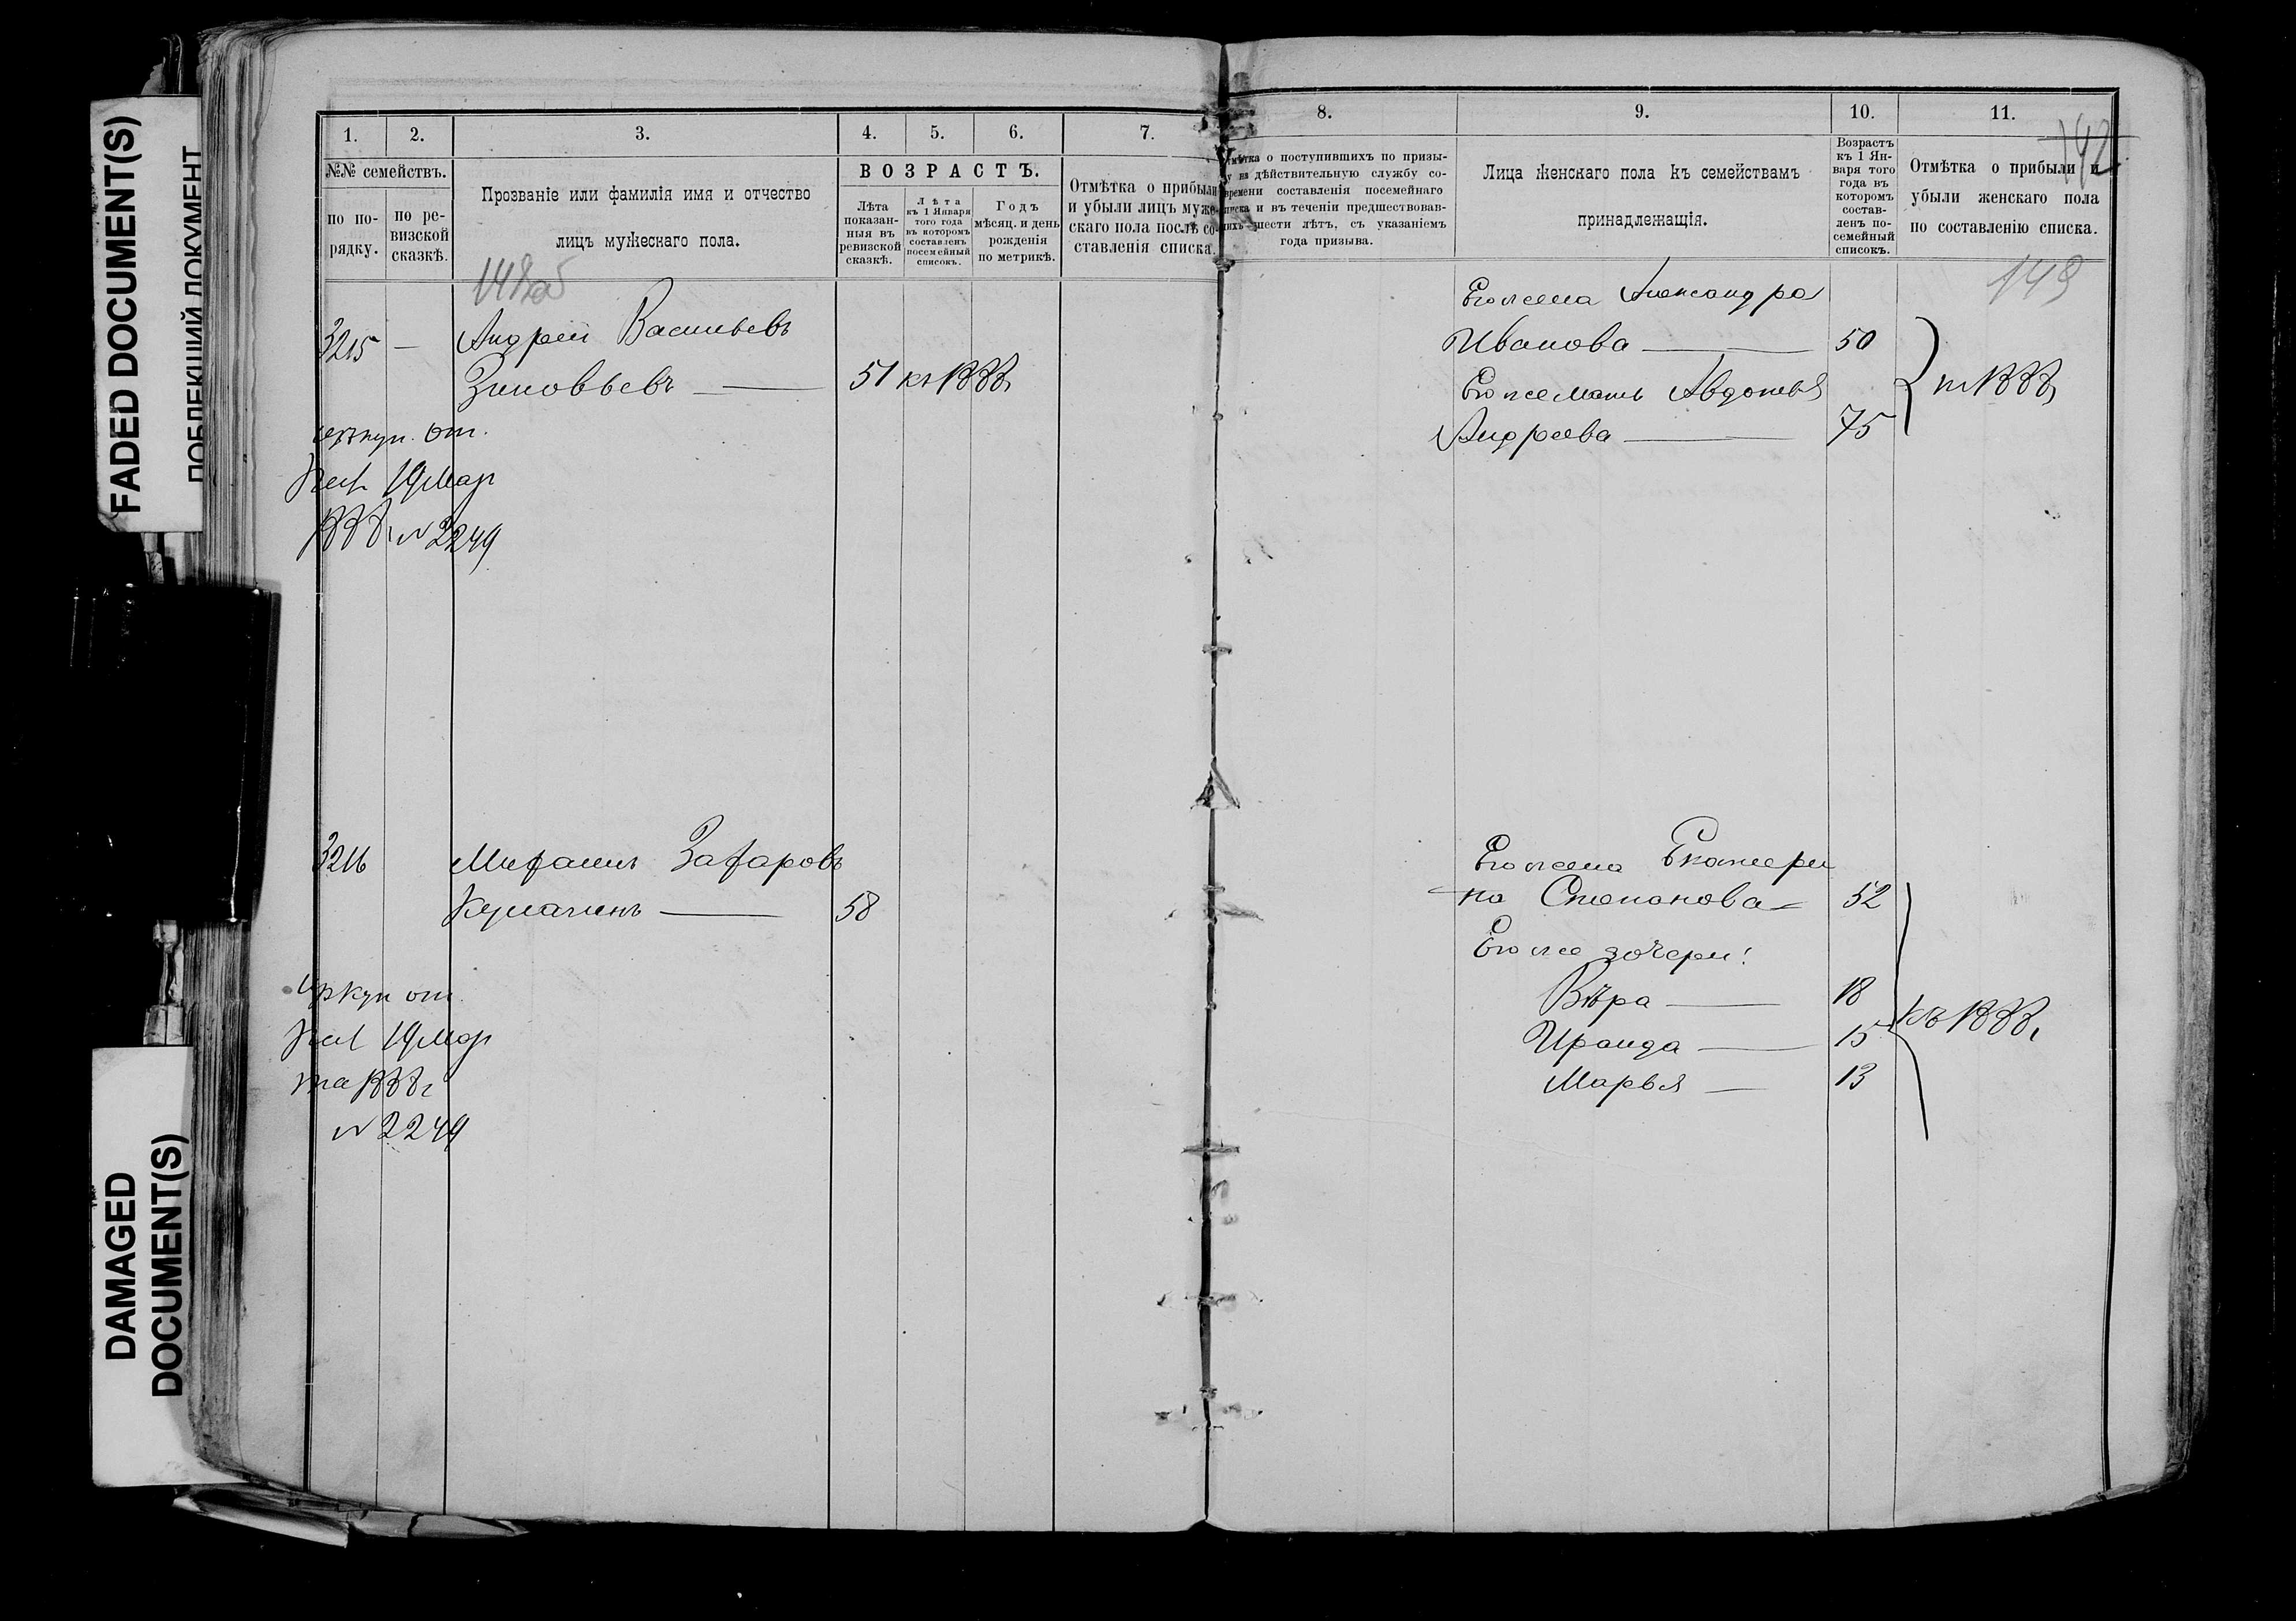 FADED DOCUMENT(S)
ПОБЛЕКШИЙ ДОКУМЕНТ
DAMAGED
DOCUMENT(S)
1. 2. 3. 4. 5. 6. 7.
№№ семействъ.
по по-
рядку.
по ре-
визской
сказкѣ.
Прозваніе или фамилія имя и отчество
лицъ мужескаго пола.
ВОЗРАСТЪ.
Лѣта
показан-
ныя въ
ревизской
сказкѣ.
Лѣта
къ 1 Января
того года
въ которомъ
составленъ
посемейный
списокъ.
Годъ
мѣсяц. и день
рожденія
по метрикѣ.
Отмѣтка о прибыли
и убыли лицъ муже-
скаго пола послѣ со-
ставленія списка.
148об
3215 — Андрей Васильевъ
Зиновьевъ — 51 къ 1888г
19 Мар
1888г № 2249
3216 Митрофанъ Захаровъ
— 58
от
19 Мар
та 1888г
№ 2249
8. 9. 10. 11.
142
Отмѣтка о поступившихъ по призы-
ву на дѣйствительную службу со-
времени составленія посемейнаго
списка и въ теченіи предшествовав-
шихъ шести лѣтъ, съ указаніемъ
года призыва.
Лица женскаго пола къ семействамъ
принадлежащія.
Возрастъ
къ 1 Ян-
варя того
года въ
которомъ
состав-
ленъ по-
семейный
списокъ.
Отмѣтка о прибыли и
убыли женскаго пола
по составленію списка.
149
Его жена Александра
Иванова — 50
Его же мать Авдотья
Андреева — 75
къ 1888г
Его жена Екатери
на Степанова — 52
Его же дочери:
Вѣра — 18
Ираида — 15
Марья — 13
къ 1888г